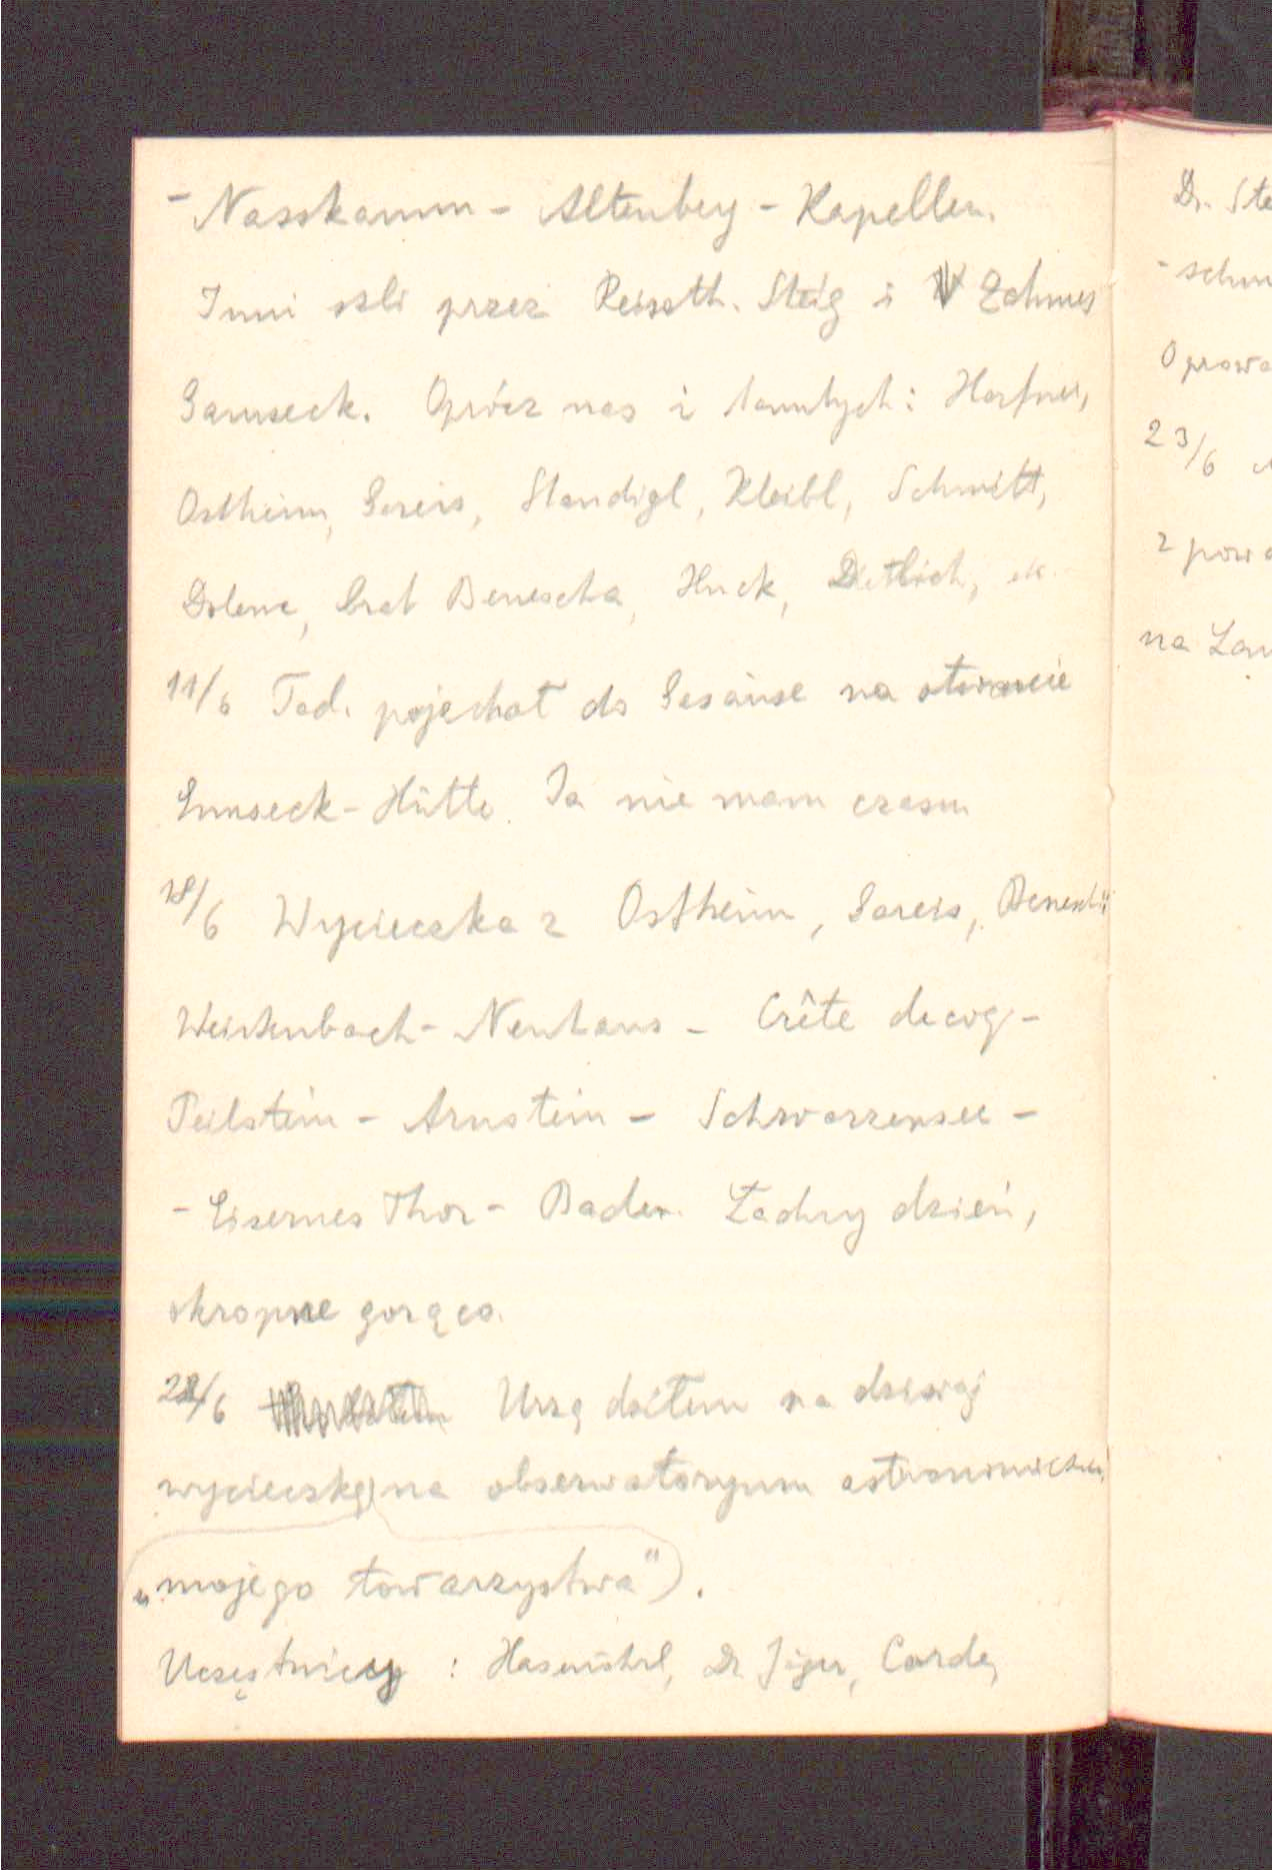 - Nasskamm - Altenberg - Kapellen.
Inni szli przez Reissth. Steig i Zahmes
Gamseck. Oprócz nas i tamtych: Hafner,
Ostheim, Gareis, Standigl, Kleibl, Schmitt,
brat Benescha, Huck, Dittlich, etc.
11/6 Tad. pojechał do Gesäuse na otwarcie
Ennseck-Hütte. Ja nie mam czasu
18/6 Wycieczka z Ostheim, Gareis, Benesch:
Weissenbach - Neuhaus - Crête de coq -
Peilstein - Arnstein - Schwarzensee -
- Eisernes Thor - Baden. Ładny dzień,
okropne gorąco.
22/6 Urządziłem na dzisiaj
wycieczkę na obserwatoryum
„mojego towarzystwa").
Uczęstnicy : Hasenöhrl, Dr Jäger, Carda,
Dr. Ste
- schm
Oprowa
23/6
z powo
na